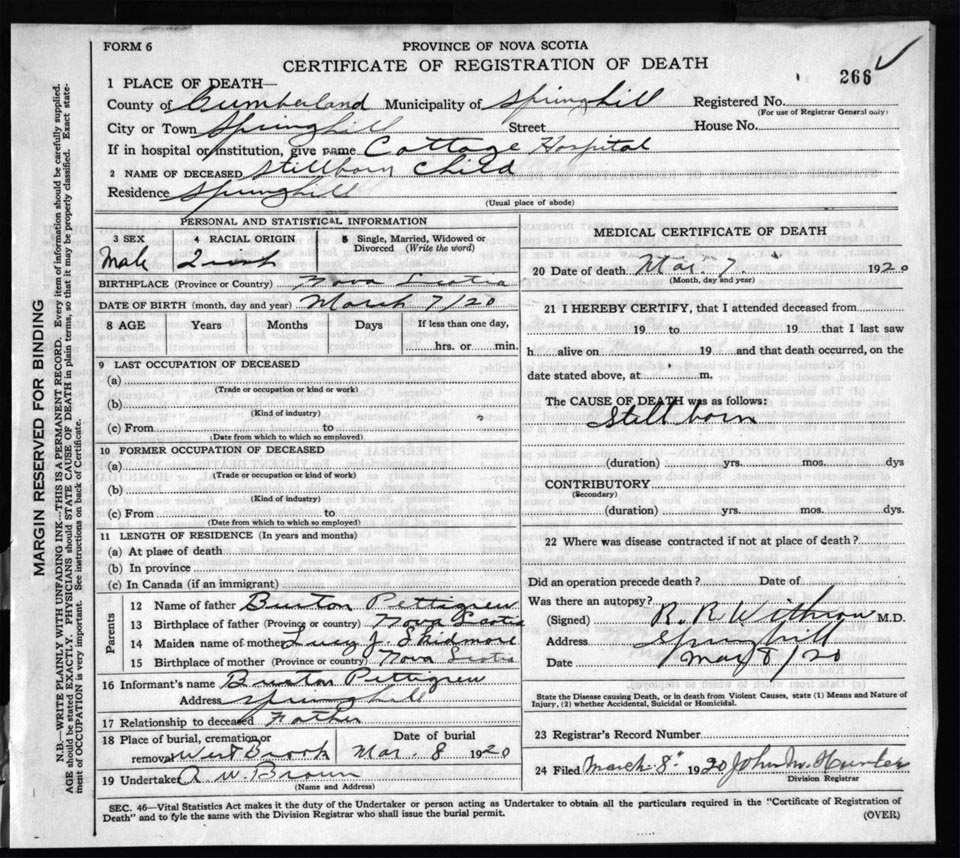 FORM 6
PROVINCE OF NOVA SCOTIA
CERTIFICATE OF REGISTRATION OF DEATH
266
1 PLACE OF DEATH—
County of Cumberland Municipality of Springhill Registered No.
(For use of Registrar General only)
City or Town Springhill Street House No.
If in hospital or institution, give name Cottage Hospital
2 NAME OF DECEASED Stillborn Child
Residence Springhill
(Usual place of abode)
PERSONAL AND STATISTICAL INFORMATION
3 SEX 4 RACIAL ORIGIN 5 Single, Married, Widowed or
Divorced (Write the word)
Male Irish
BIRTHPLACE (Province or Country) Nova Scotia
DATE OF BIRTH (month, day and year) March 7/20
8 AGE Years Months Days If less than one day,
hrs. or min.
9 LAST OCCUPATION OF DECEASED
(a)
(Trade or occupation or kind or work)
(b)
(Kind of industry)
(c) From to
(Date from which to which so employed)
10 FORMER OCCUPATION OF DECEASED
(a)
(Trade or occupation or kind of work)
(b)
(Kind of industry)
(c) From to
(Date from which to which so employed)
11 LENGTH OF RESIDENCE (In years and months)
(a) At place of death
(b) In province
(c) In Canada (if an immigrant)
Parents
12 Name of father Burton Pettigrew
13 Birthplace of father (Province or country) Nova Scotia
14 Maiden name of mother Lucy J. Skidmore
15 Birthplace of mother (Province or country) Nova Scotia
16 Informant's name Burton Pettigrew
Address Springhill
17 Relationship to deceased Father
18 Place of burial, cremation or Date of burial
removal West Brook Mar. 8 1920
19 Undertaker A W. Brown
(Name and Address)
MEDICAL CERTIFICATE OF DEATH
20 Date of death Mar. 7. 1920
(Month, day and year)
21 I HEREBY CERTIFY, that I attended deceased from
19 to 19 that I last saw
h alive on 19 and that death occurred, on the
date stated above, at m.
The CAUSE OF DEATH was as follows:
Still born
(duration) yrs. mos. dys
CONTRIBUTORY
(Secondary)
(duration) yrs. mos. dys.
22 Where was disease contracted if not at place of death?
Did an operation precede death? Date of
Was there an autopsy?
(Signed) R. R Withrow M.D.
Address Springhill
Date Mar 8/20
State the Disease causing Death, or in death from Violent Causes, state (1) Means and Nature of
Injury, (2) whether Accidental, Suicidal or Homicidal.
23 Registrar's Record Number
24 Filed March 8 1920 John M. Hunter
Division Registrar
SEC. 46—Vital Statistics Act makes it the duty of the Undertaker or person acting as Undertaker to obtain all the particulars required in the "Certificate of Registration of
Death" and to fyle the same with the Division Registrar who shall issue the burial permit.
(OVER)
MARGIN RESERVED FOR BINDING
N.B.—WRITE PLAINLY WITH UNFADING INK—THIS IS A PERMANENT RECORD. Every item of information should be carefully supplied.
AGE should be stated EXACTLY. PHYSICIANS should STATE CAUSE OF DEATH in plain terms, so that it may be properly classified. Exact state-
ment of OCCUPATION is very important. See instructions on back of Certificate.